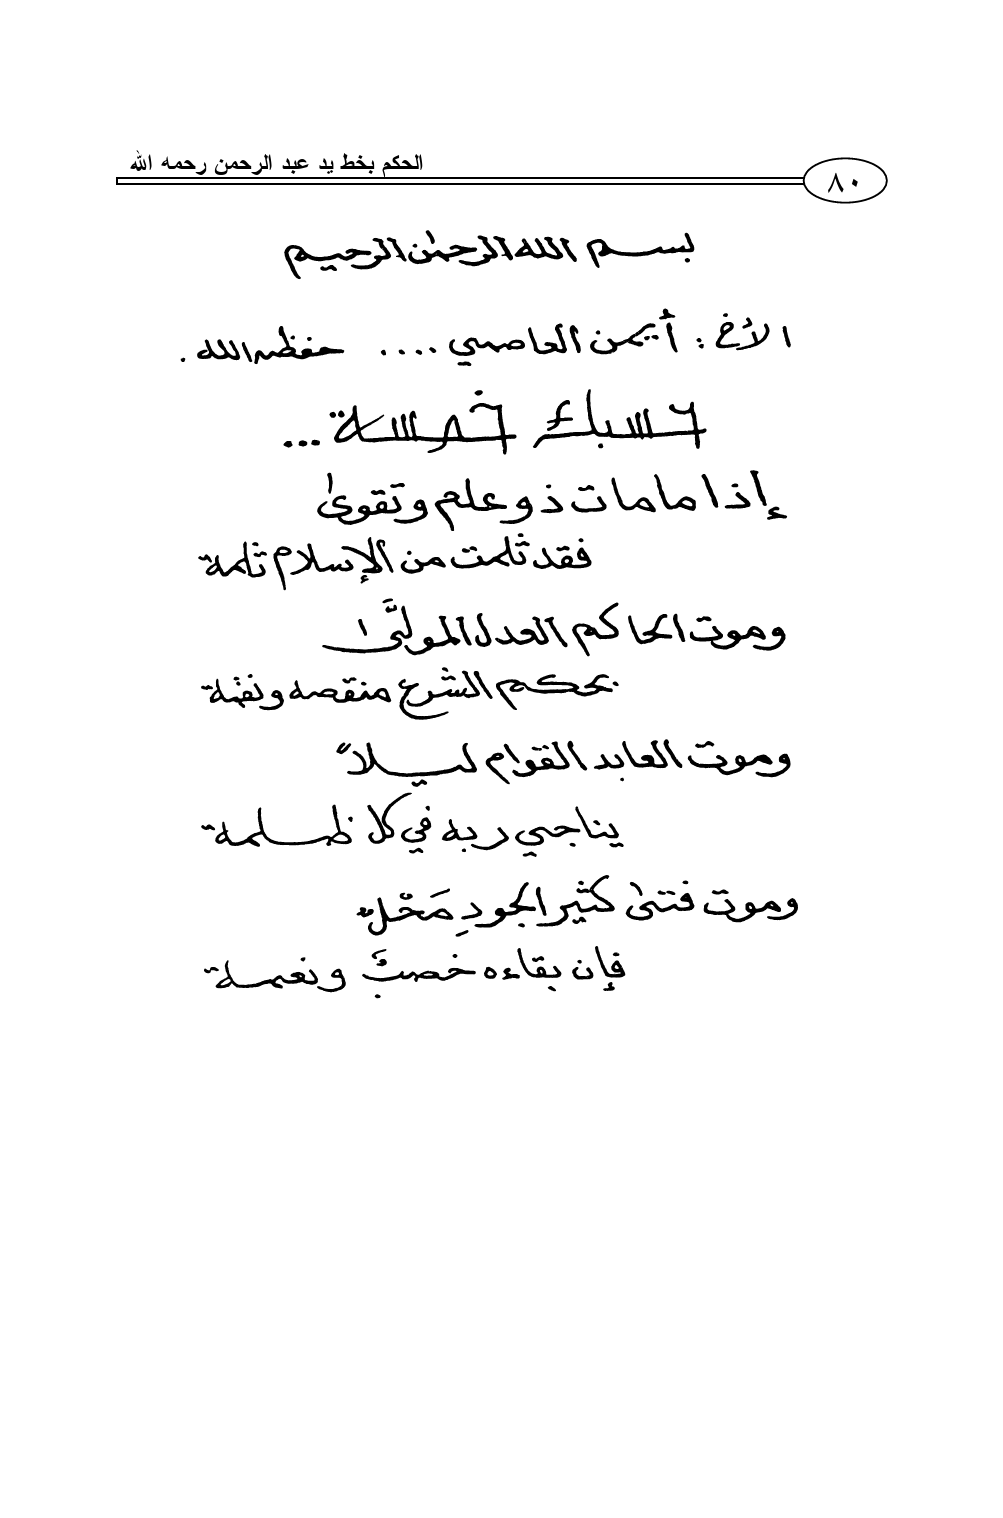 الحكم بخط يد عبد الرحمن رحمه الله
٨٠
بسم الله الرحمٰن الرحيم
الأخ : أيمن العاصمي .... حفظه الله .
حسبك خمسة ...
إذا ما مات ذو علم وتقوىٰ
فقد ثلمت من الإسلام ثلمة
وموت الحاكم العدل المولَّىٰ
بحكم الشرع منقصه ونقمة
وموت العابد القوام ليلاً
يناجي ربه في كل ظلمة
وموت فتىٰ كثير الجودِ مَحْلٌ
فإن بقاءه خصبٌ ونعمة